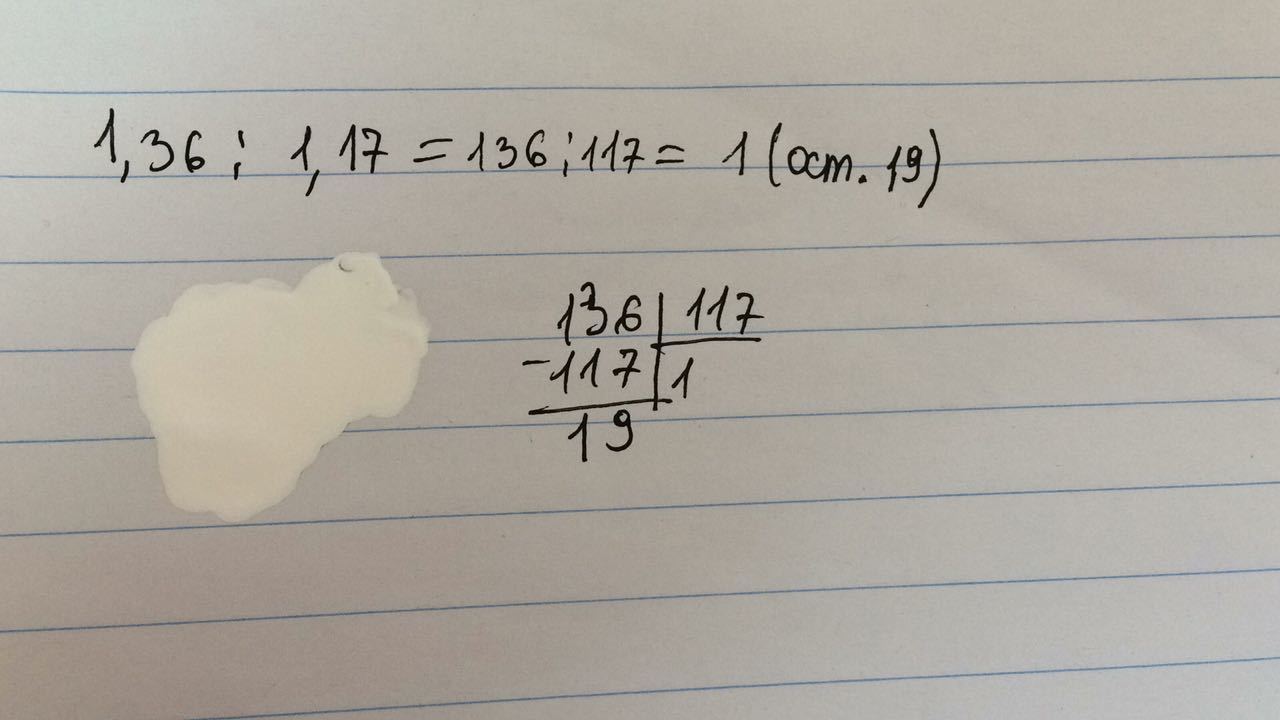 1,36 : 1,17 = 136 : 117 = 1 (ост. 19)
136 | 117
-117 | 1
19